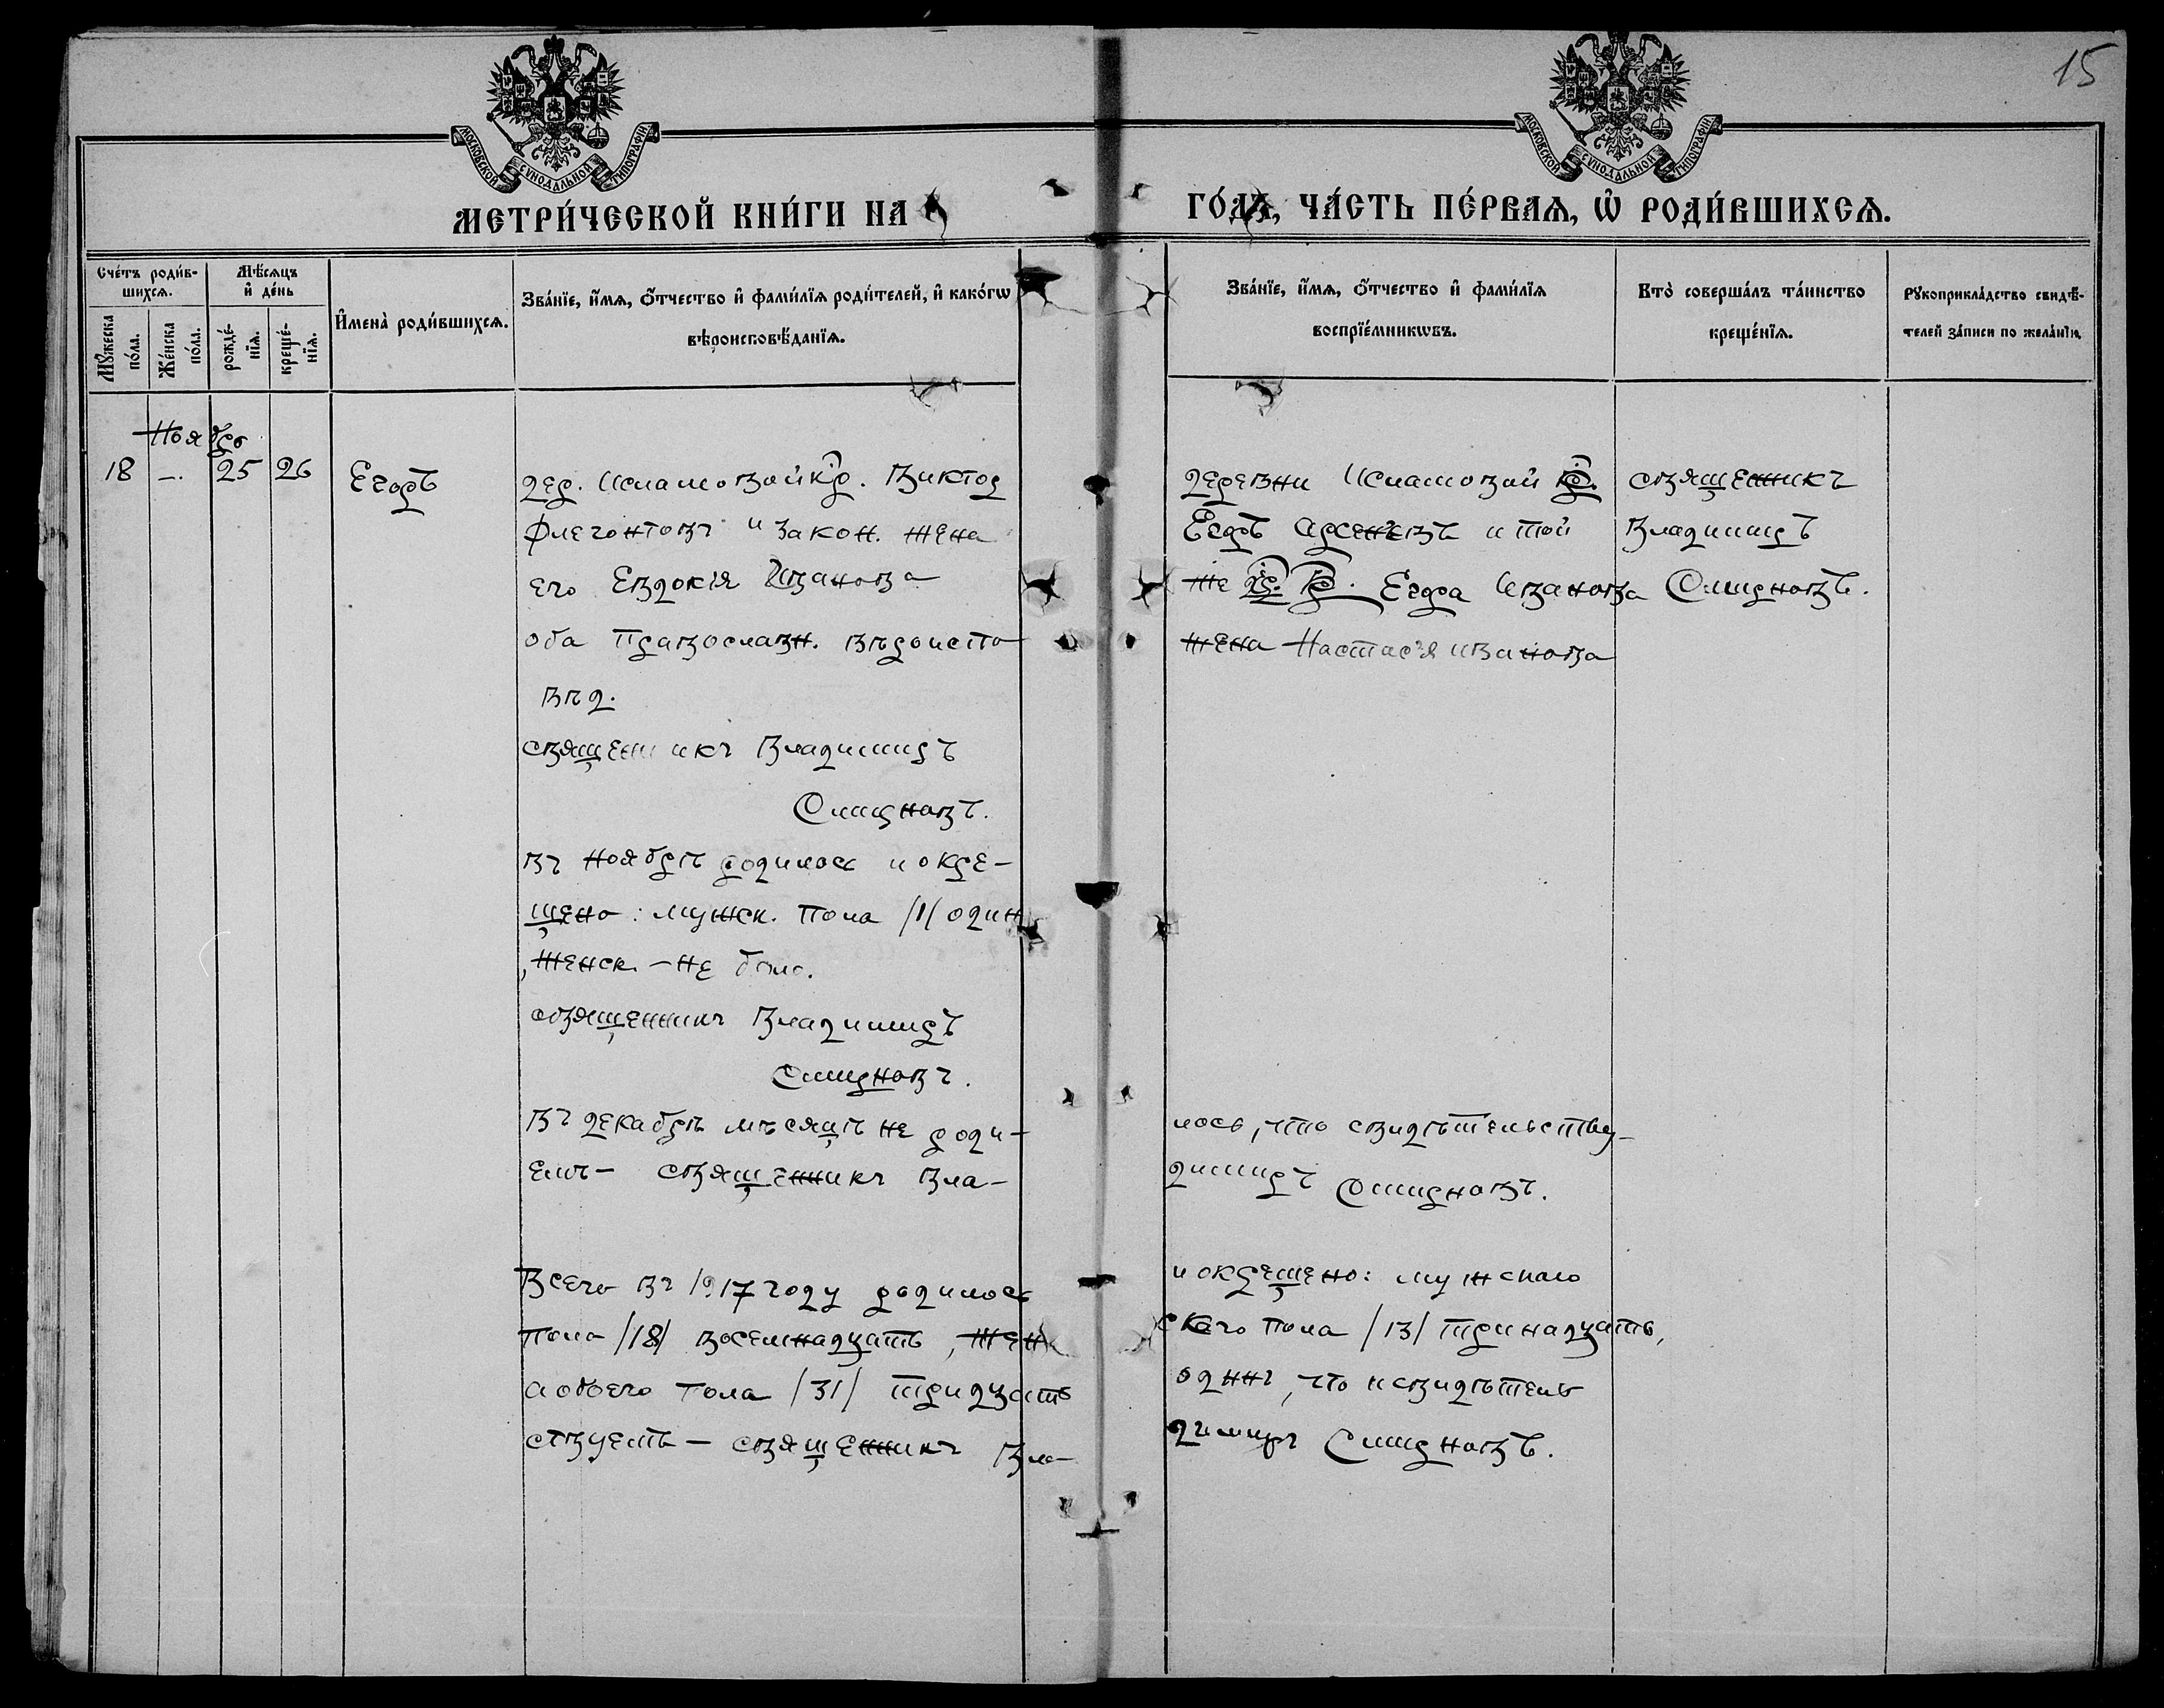 15
МОСКОВСКОЙ СѴНОДАЛЬНОЙ ТИПОГРАФІИ
МОСКОВСКОЙ СѴНОДАЛЬНОЙ ТИПОГРАФІИ
МЕТРИ́ЧЕСКОЙ КНИ́ГИ НА
ГО́ДА, ЧА́СТЬ ПЕ́РВАѦ, Ѡ҆ РОДИ́ВШИХСѦ.
Сче́тъ роди́в-
шихсѧ.
Мꙋ́жеска по́ла.
Же́нска по́ла.
Мѣ́сѧцъ и҆ де́нь
рожде́-нїѧ.
креще́-нїѧ.
И҆мена̀ роди́вшихсѧ.
Зва́нїе, и҆́мѧ, ѻ҆́тчество и҆ фами́лїѧ роди́телей, и҆ како́гѡ
вѣроисповѣ́данїѧ.
Зва́нїе, и҆́мѧ, ѻ҆́тчество и҆ фами́лїѧ
воспрїе́мникѡвъ.
Кто̀ соверша́лъ та́инство
креще́нїѧ.
Рꙋкоприкла́дство свидѣ́-
телей за́писи по жела́нїю.
Ноябрь
18 — 25 26
Егоръ
дер. кр. Виктор
Флегонтовъ и закон. жена
его Евдокія Иванова
оба православн. вѣроиспо
вѣд.
священникъ Владимиръ
Смирновъ.
деревни кр.
Егоръ Арсеньевъ и той
же д. кр. Егора Иванова
жена Настасія Иванова
священникъ
Владимиръ
Смирновъ.
въ ноябрѣ родилось и окре-
щено: мужск. пола /1/ один
, женск. — не было.
священникъ Владимиръ
Смирновъ.
Въ декабрѣ мѣсяцѣ не роди-
лось, что свидѣтельству-
емъ — священникъ Вла-
димиръ Смирновъ.
Всего въ 1917 году родилось
и окрещено: мужскаго
пола /18/ восемнадцать, жен
скаго пола /13/ тринадцать,
а обоего пола /31/ тридцать
одинъ, что и свидѣтель
ствуетъ — священникъ Вла-
димиръ Смирновъ.